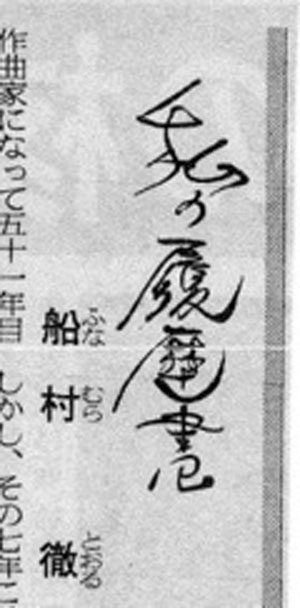 私の履歴書
船村 徹
ふなむら とおる
作曲家になって五十一年目 しかし、その七年